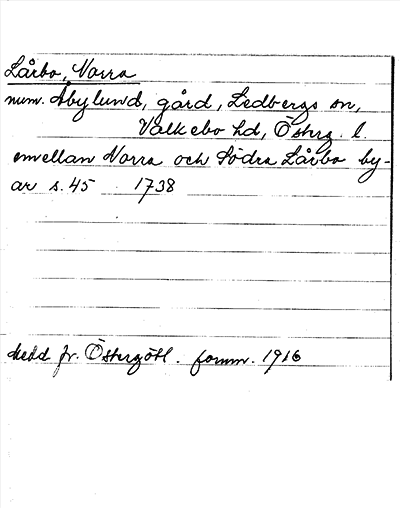 Lårbo, Norra
num. Åbylund, gård, Ledbergs sn,
Valkebo hd, Östrg. l.
emellan Norra och Södra Lårbo by-
ar s. 45 1738
Medd fr. Östergötl. fornm. 1916